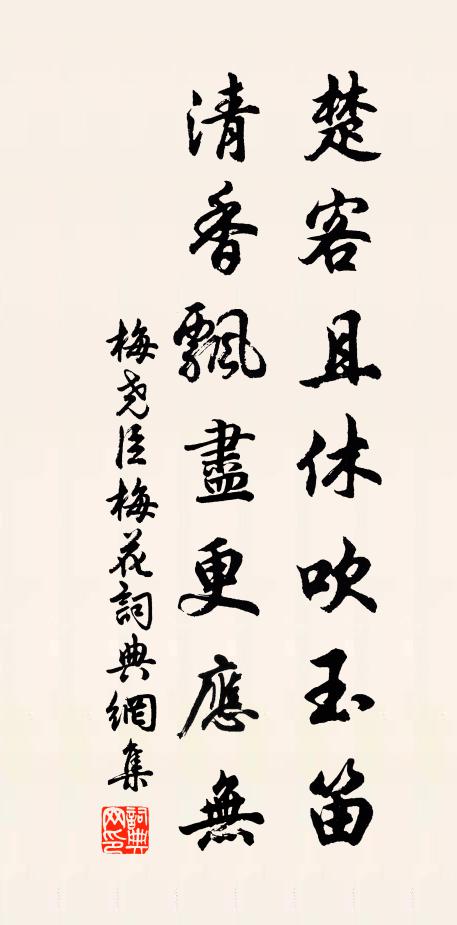 楚客且休吹玉笛
清香飄盡更應無
梅堯臣梅花詞典網集
詞典網印